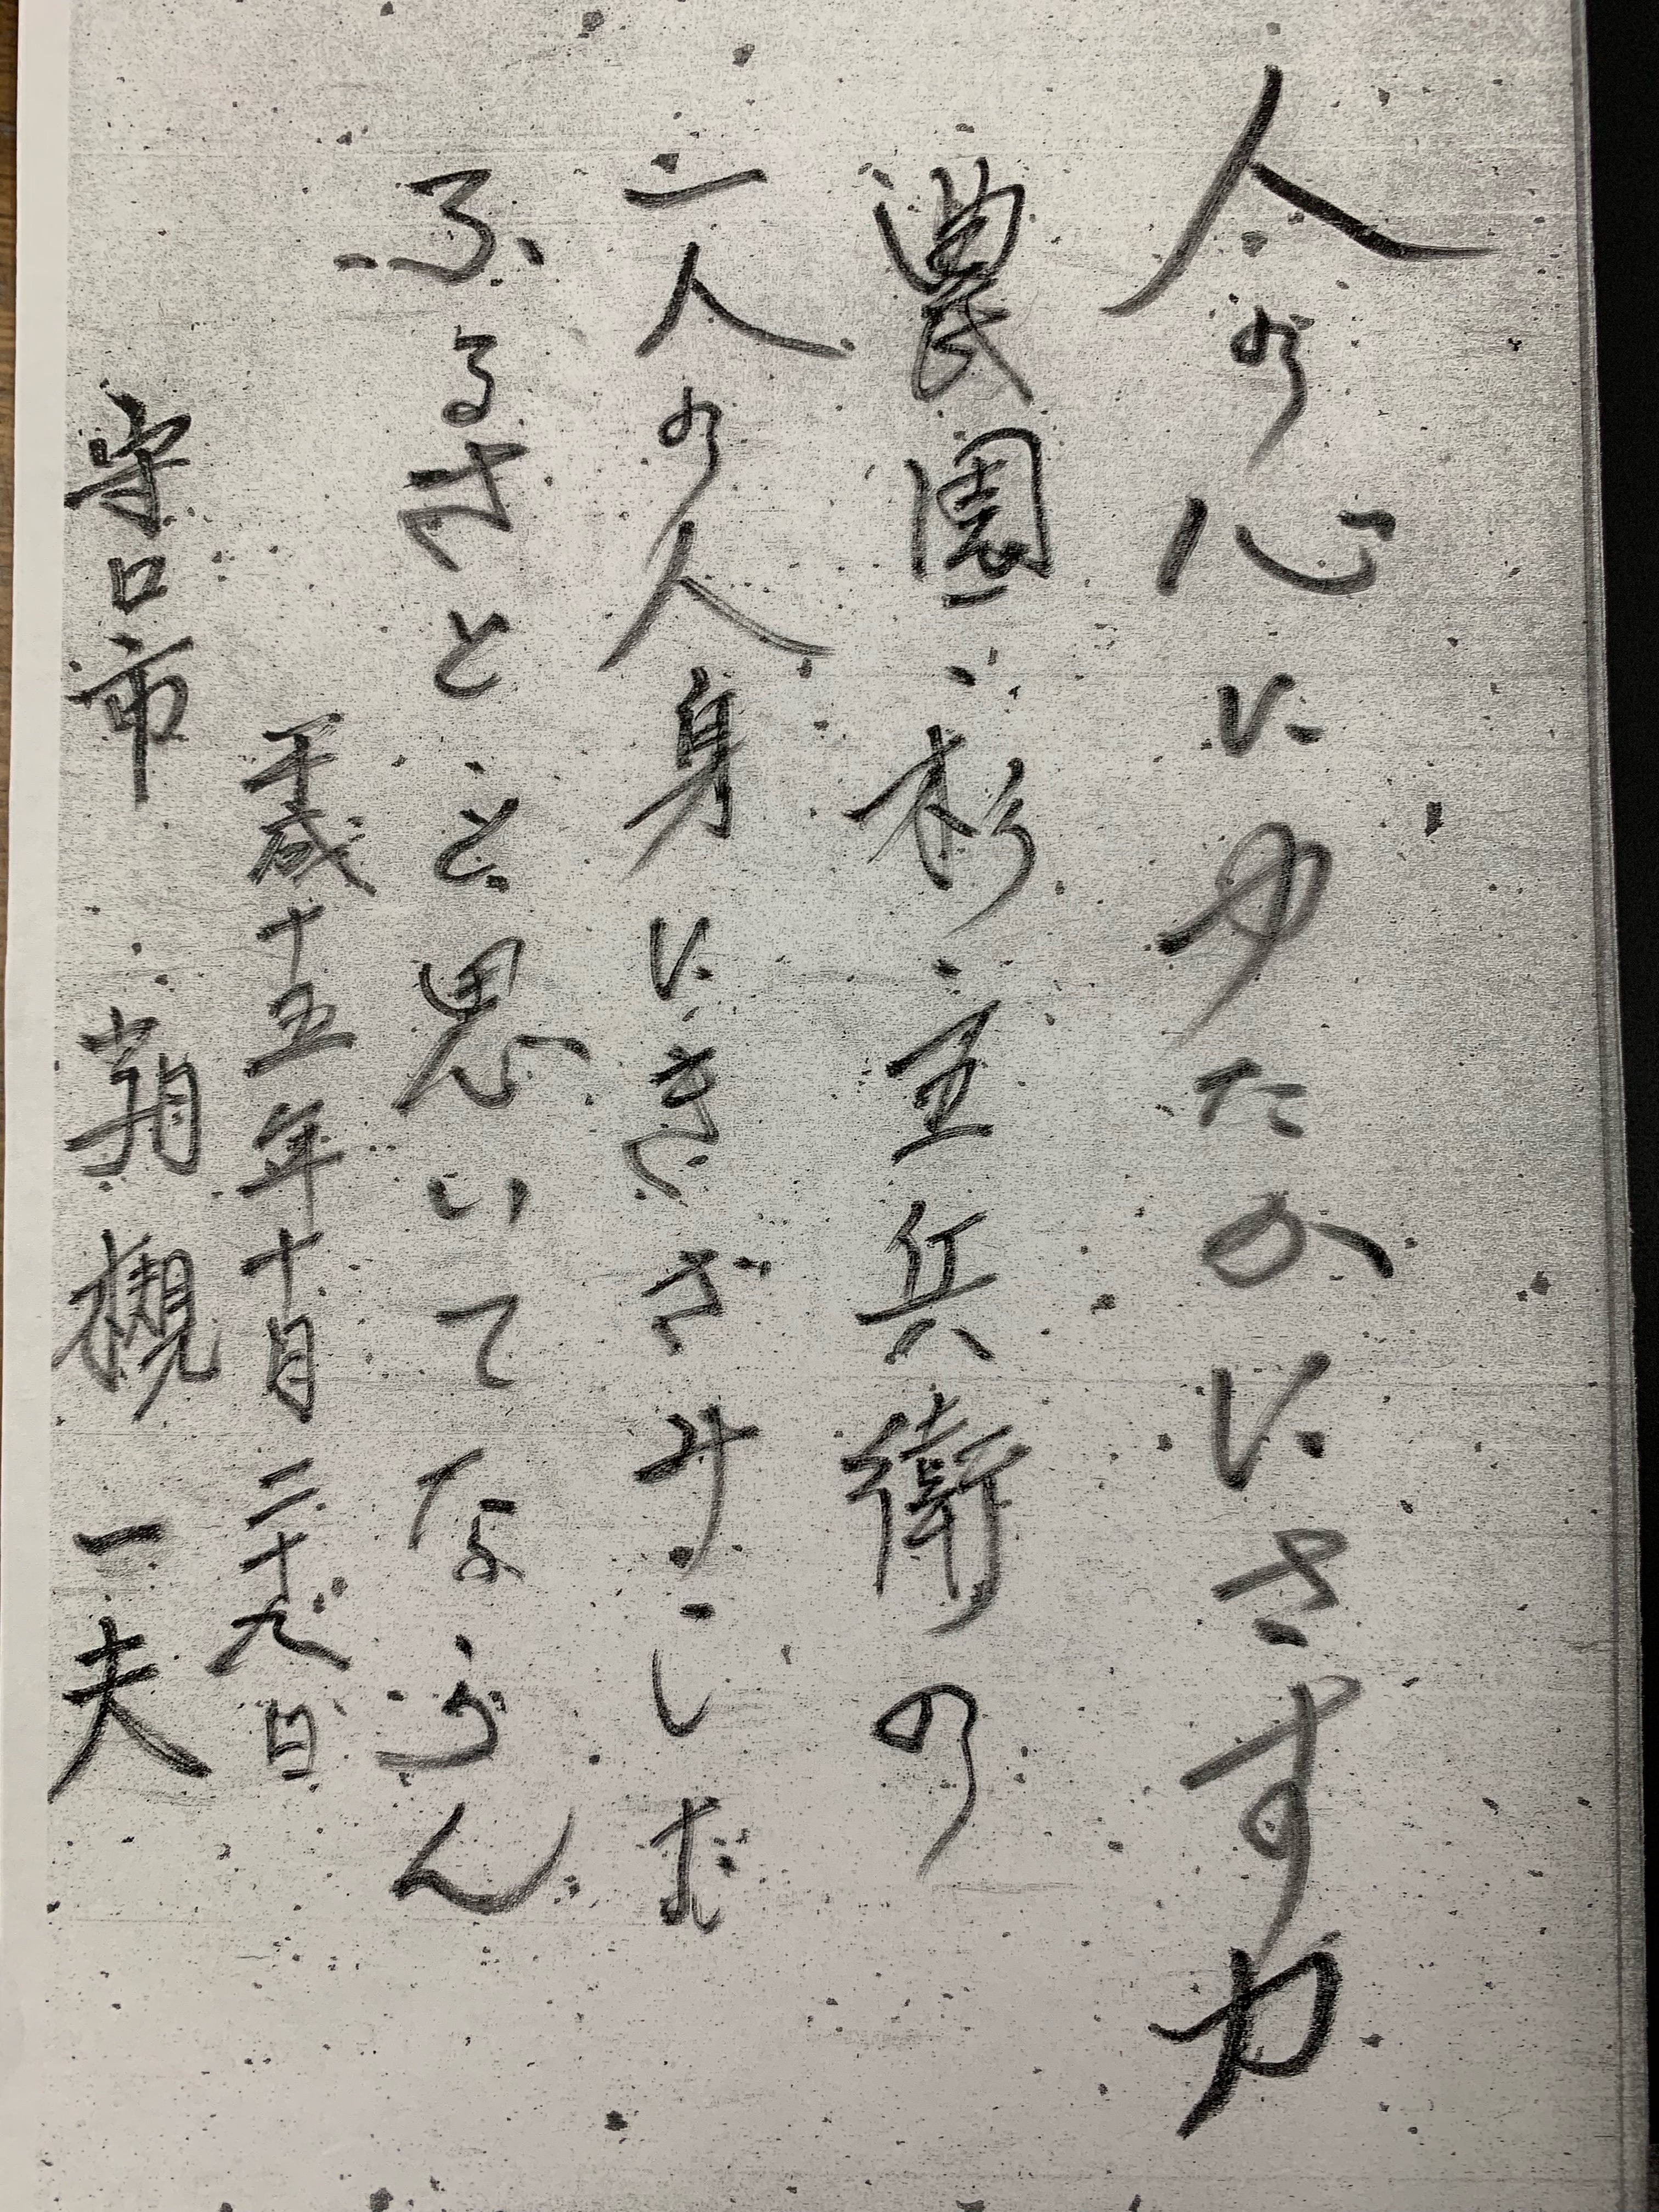 人の心にゆたかにさす力
農園、杉五兵衛の
一人の人身にきざみこしむ
ふるさとと思いてならん
平成十五年十月二十九日
守口市 一夫